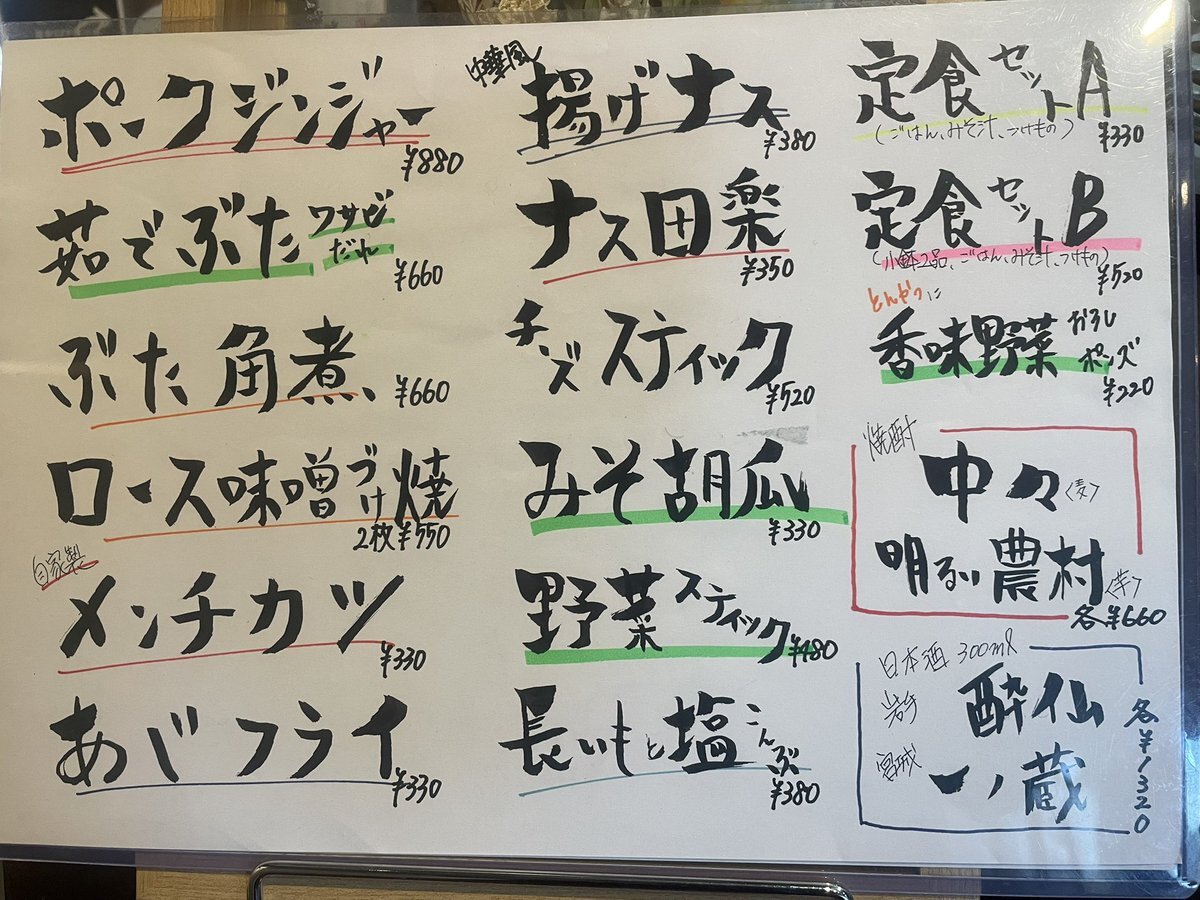 ポークジンジャー
¥880
茹でぶた ワサビだれ
¥660
ぶた角煮
¥660
ロース味噌づけ焼
2枚¥550
自家製
メンチカツ
¥330
あじフライ
¥330
中華風
揚げナス
¥380
ナス田楽
¥350
チーズスティック
¥520
みそ胡瓜
¥330
野菜スティック
¥480
長いもと塩こんぶ
¥380
定食セットA
(ごはん、みそ汁、つけもの)
¥330
定食セットB
(小鉢2品、ごはん、みそ汁、つけもの)
¥520
とんかつに
香味野菜 おろしポンズ
¥220
焼酎
中々〈麦〉
明るい農村〈芋〉
各¥660
日本酒 300ml
岩手 酔仙
宮城 一ノ蔵
各¥1320